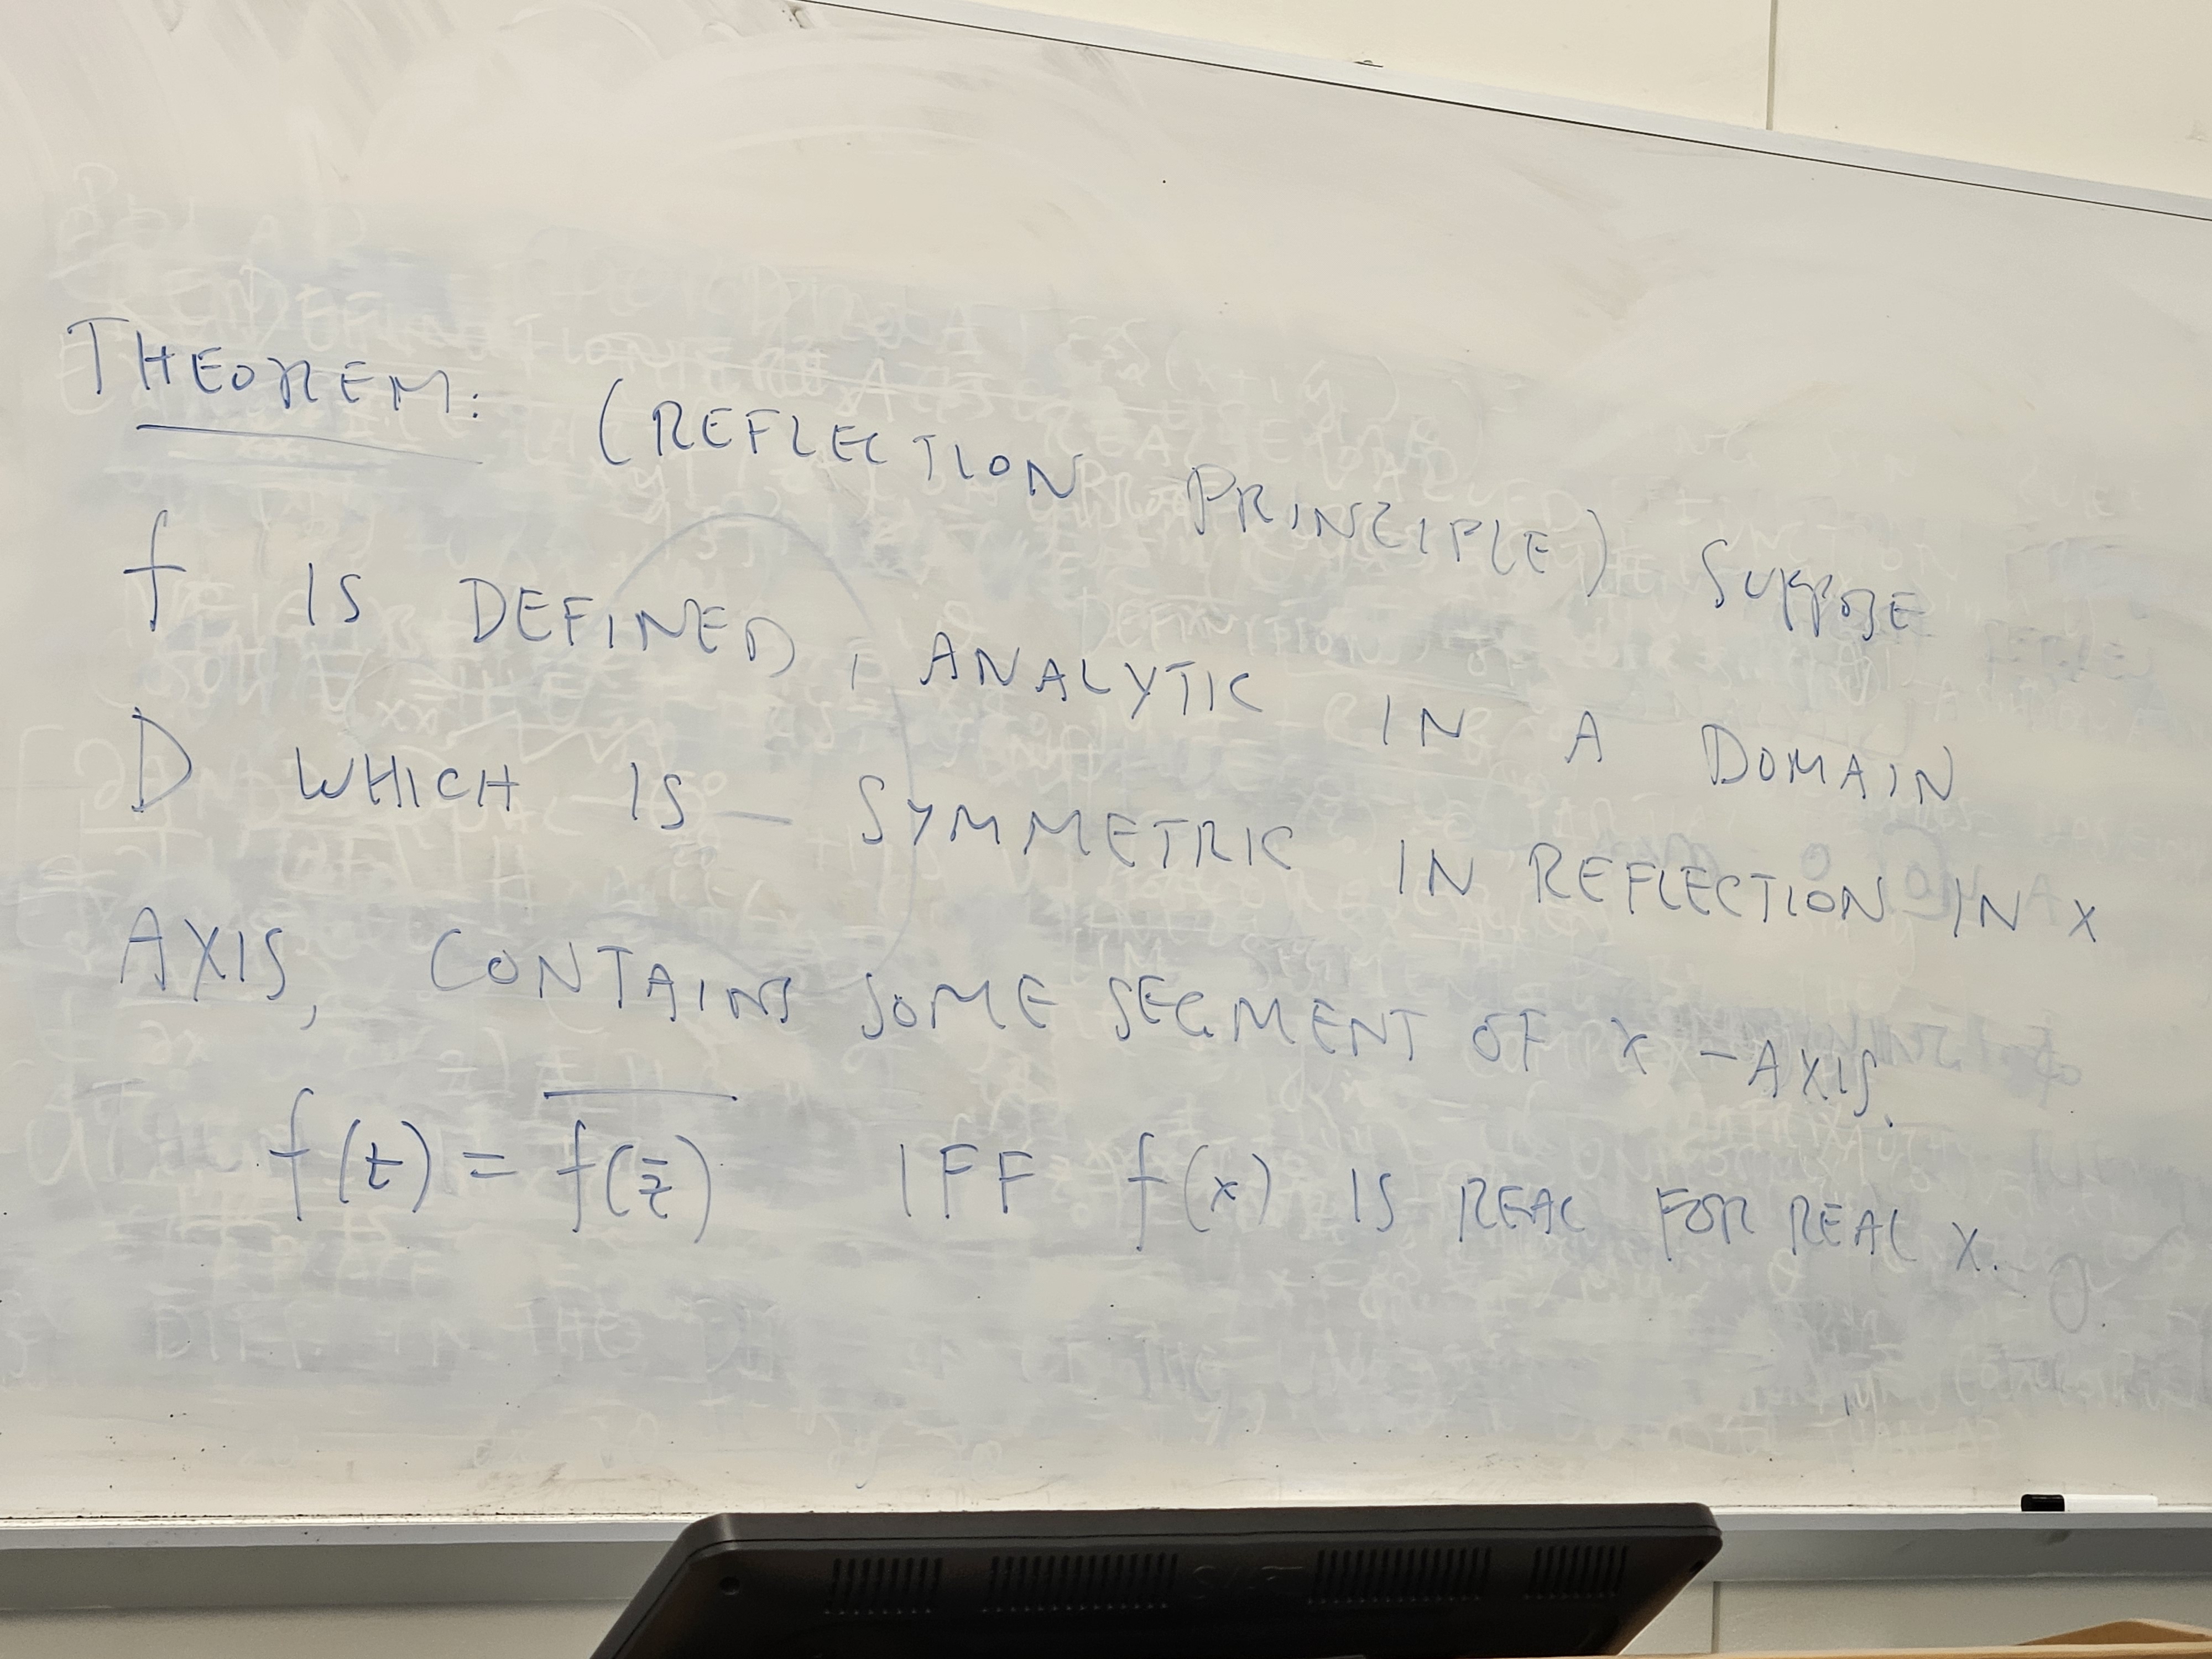 THEOREM: (REFLECTION PRINCIPLE) SUPPOSE
f IS DEFINED, ANALYTIC IN A DOMAIN
D WHICH IS SYMMETRIC IN REFLECTION IN X
AXIS, CONTAINS SOME SEGMENT OF X-AXIS.
f(z) = \overline{f(\bar{z})} IFF f(x) IS REAL FOR REAL X.